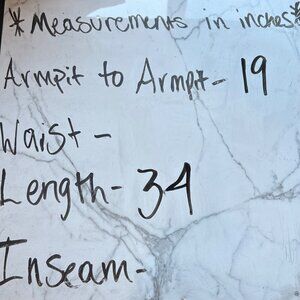 *Measurements in inches*
Armpit to Armpit - 19
Waist -
Length - 34
Inseam -